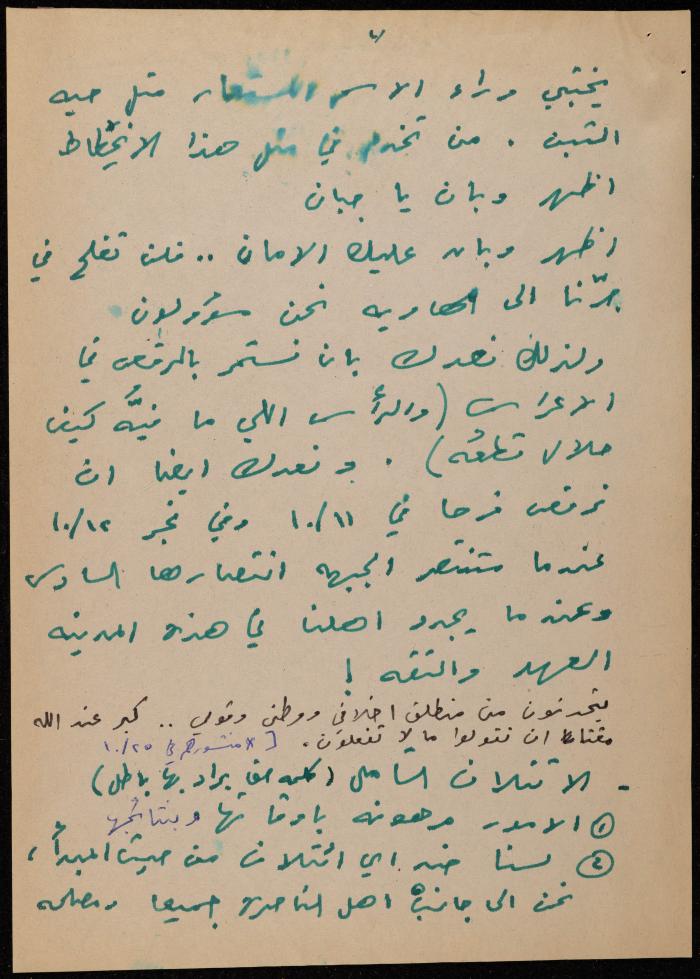 يختبئ وراء الاسم المستعار مثل حيه
التبن . من تخدم في مثل هذا الانحطاط
اظهر وبان يا جبان
اظهر وبان عليك الامان .. فلن تفلح في
جرّنا الى الهاويه نحن مسؤولون
ولذلك نعدك بان نستمر بالرقص في
الاعراس (والرأس اللي ما فيّه كيف
حلال قطعُه) . ونعدك ايضا ان
نرقص فرحا في ١٠/١١ وفي فجر ١٠/١٢
عندما ستنتصر الجبهه انتصارها السادس
وعندما يجدد اهلنا في هذه المدينه
العهد والثقه !
يتحدثون من منطلق اخلاقي ووطني وقومي .. كبر عند الله
مقتا ان تقولوا ما لا تفعلون. [ منشورهم في ١٠/٢٥
- الائتلاف الشامل (كلمه حق يراد بها باطل)
① الامور مرهونه باوقاتها وبنتائجها
② لسنا ضد اي ائتلاف من حيث المبدأ ،
نحن الى جانب اهل الناصره جميعا ومصلحه